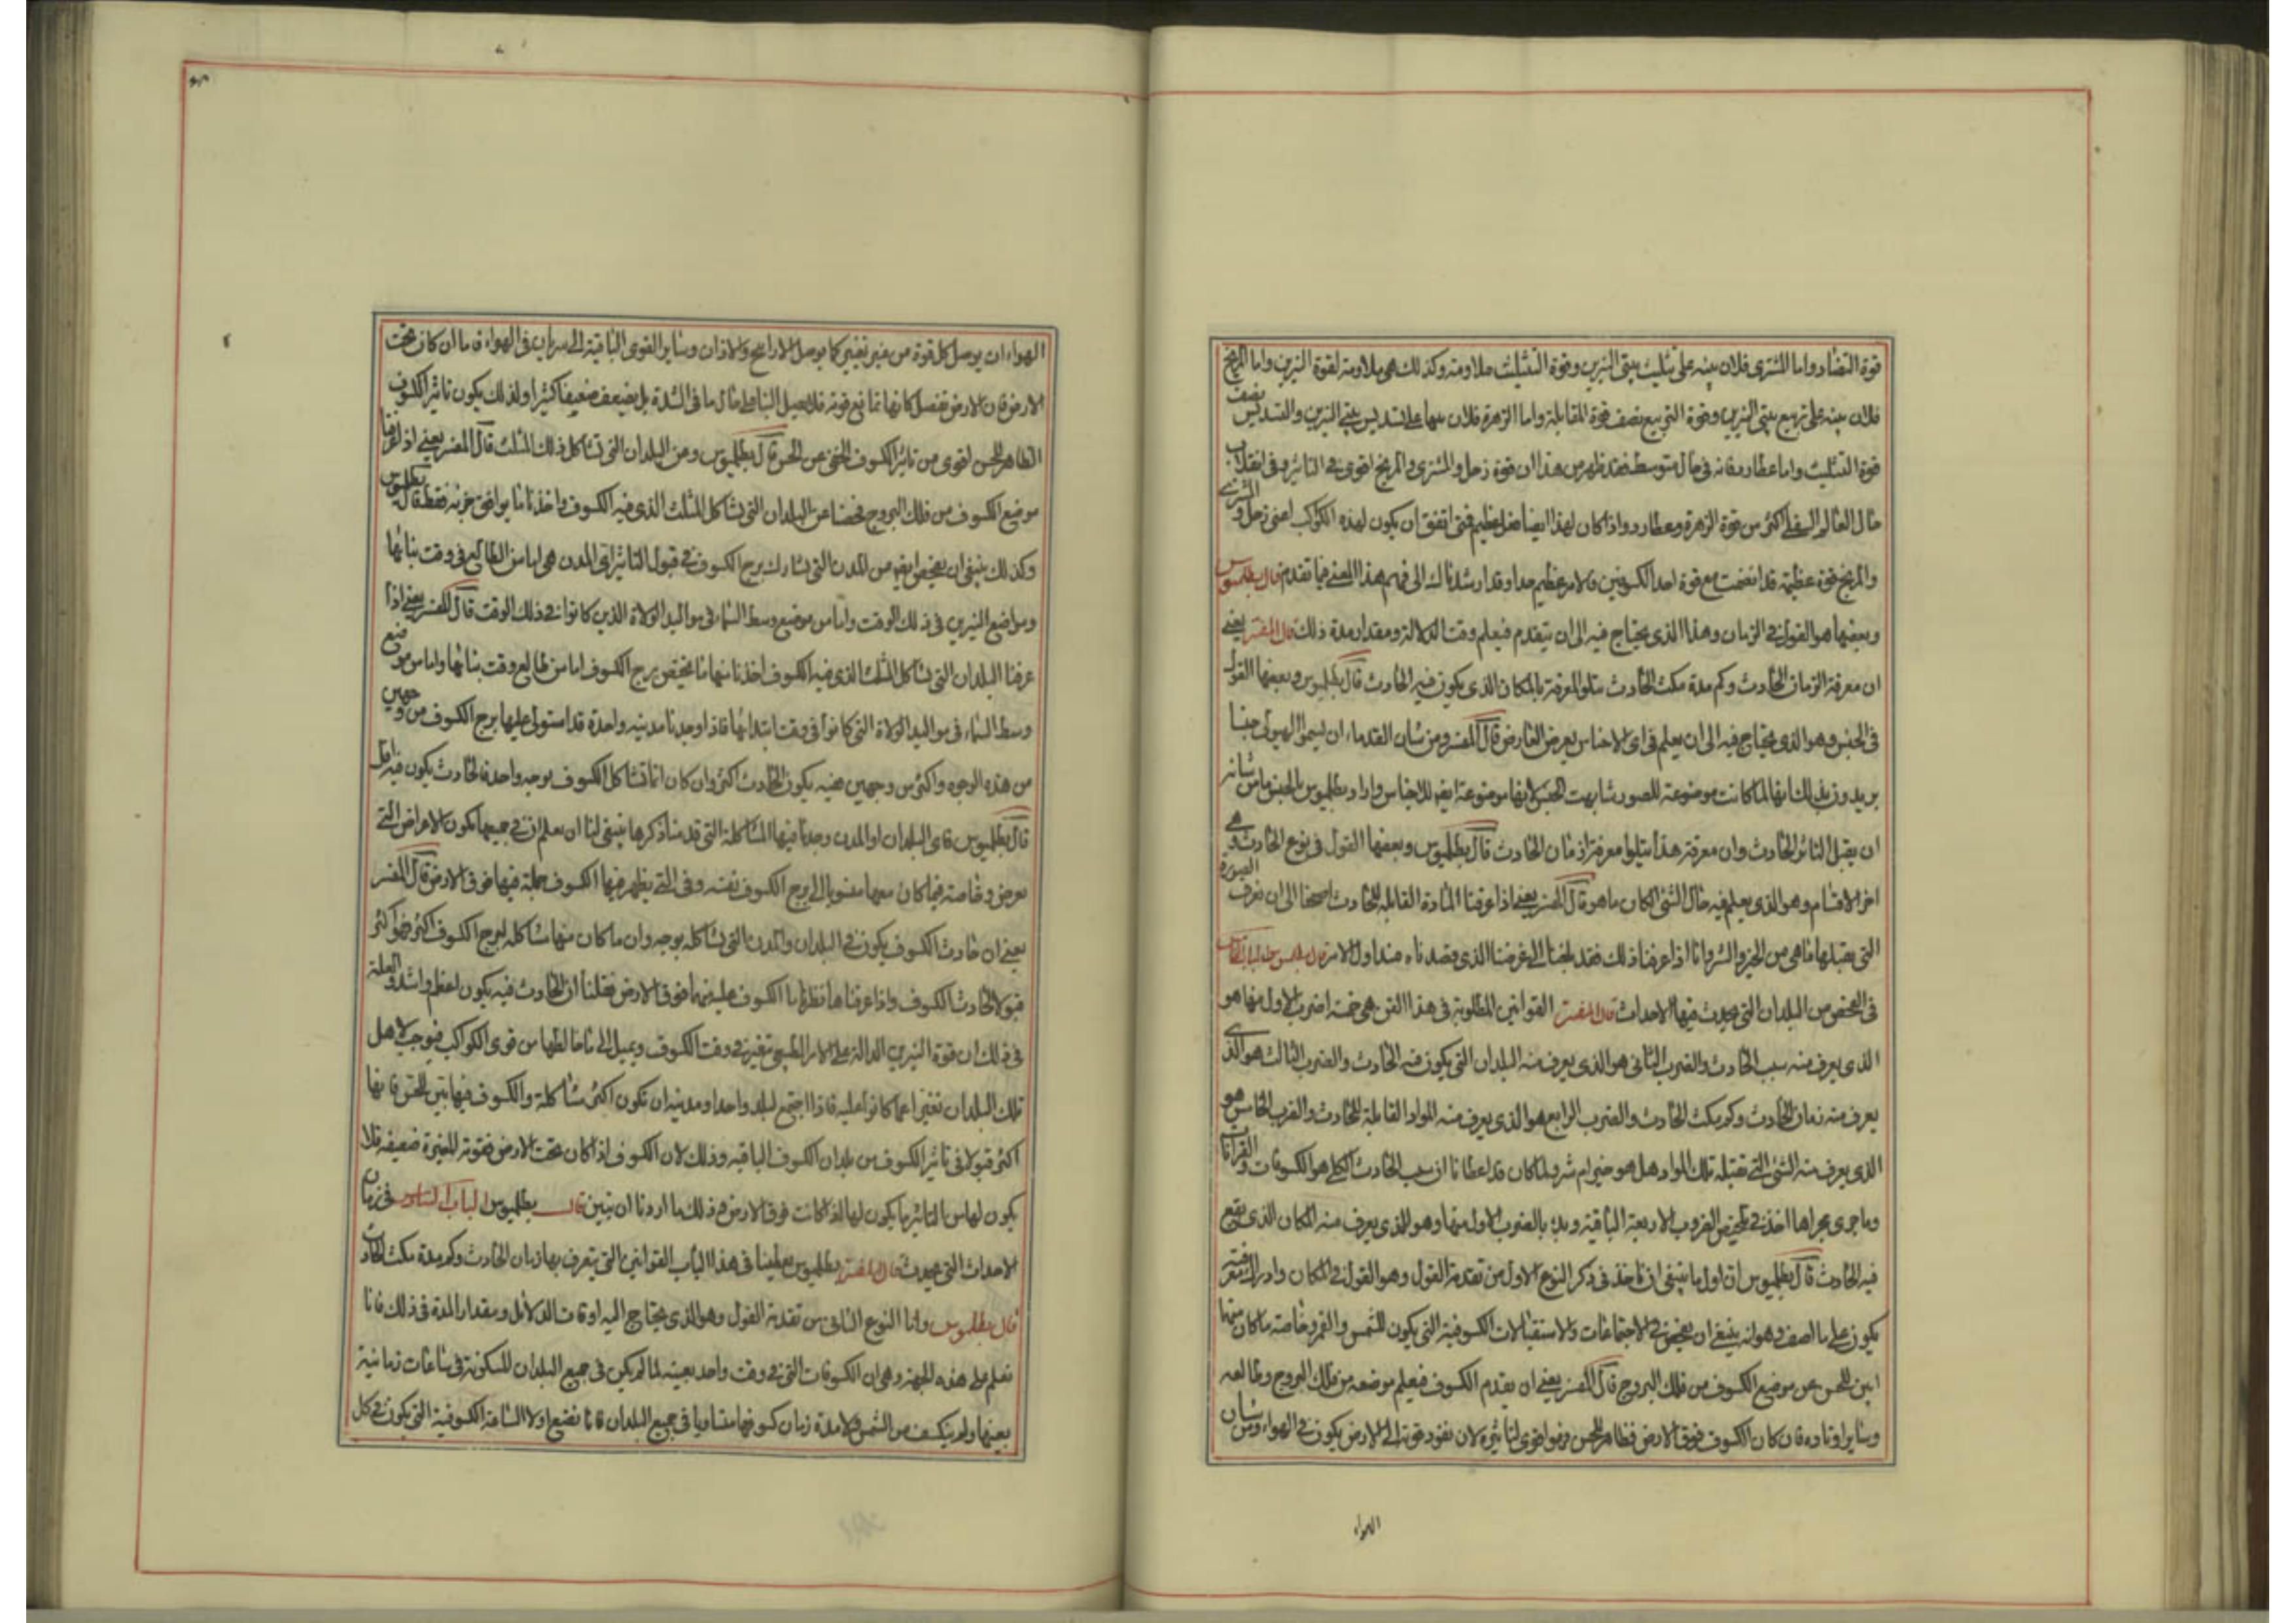 قوة التضاد واما المشترى فلان بينه على تثليث بيتى النيرين وقوة التثليث ملاومة وكذلك هى ملاومة لقوة النيرين واما المريخ
فلان بيته على تربيع بيتى النيرين وقوة التربيع نصف قوة المقابلة واما الزهرة فلان بيتها على تسديس بيتى النيرين والتسديس نصف
قوة التثليث واما عطارد فانه فى حال متوسط فقد ظهر من هذا ان قوة زحل والمشترى والمريخ اقوى فى التاثير وفى انقلاب
حال العالم السفلى اكثر من قوة الزهرة وعطارد واذا كان لهذا ايضا فعل عظيم فمتى اتفق ان يكون لهذه الكواكب اعنى زحل والمشترى
والمريخ قوة عظيمة قد انضمت مع قوة احد الكسوفين فالامر عظيم جدا وقد ارشدناك الى فهم هذا المعنى فيما تقدم قال بطلميوس
وبعضها هو القول فى الزمان وهذا الذى يحتاج فيه الى ان يتقدم فيعلم وقت الدلالة ومقدار مدة ذلك قال المفسر يعنى
ان معرفة الزمان الحادث وكم مدة مكث الحادث يتلو المعرفة بالمكان الذى يكون فيه الحادث قال بطلميوس وبعضها القول
فى الجنس وهو الذى يحتاج فيه الى ان يعلم فى اى الاجناس يعرض العارض قال المفسر ومن شان القدماء ان يسموا الهيولى جنسا
يريدون بذلك انها لما كانت موضوعة للصور شابهت الجنس لانها موضوعة ايضا للاجناس واراد بطلميوس بالجنس ما من شانه
ان يقبل التاثر الحادث وان معرفة هذا يتلوا معرفة زمان الحادث قال بطلميوس وبعضها القول فى نوع الحادث وهى
اخر الاقسام وهو الذى يعلم فيه حال الشئ الكائن ما هو قال المفسر يعنى اذا عرفنا المادة القابلة للحادث احتجنا الى ان نعرف الصورة
التى يقبلها ما هى من الخير والشر وانا اذا عرفنا ذلك فقد بلغنا الى غرضنا الذى قصدناه منذ اول الامر قال بطلميوس
فى الفحص من البلدان التى يحدث فيها الاحداث قال المفسر القوانين المطلوبة فى هذا الفن هى خمسة اضرب الاول منها هو
الذى يعرف منه سبب الحادث والضرب الثانى هو الذى يعرف منه البلدان التى يكون فيه الحادث والضرب الثالث هو الذى
يعرف منه زمان الحادث وكم يمكث الحادث والضرب الرابع هو الذى يعرف منه المواد القابلة للحادث والضرب الخامس هو
الذى يعرف منه الشئ الذى تقبله تلك المواد هل هو خير ام شر ولما كان قد اعطانا ان سبب الحادث الكلى هو الكسوفات والقرانات
وما جرى مجراها اخذ فى تلخيص الضروب الاربعة الباقية وبدأ بالضرب الاول منها وهو الذى يعرف منه المكان الذى يقع
فيه الحادث قال بطلميوس ان اول ما ينبغى ان ناخذ فى ذكر النوع الاول من تقدمة القول وهو القول فى المكان
يكون على ما اصف وهو انه ينبغى ان يفحص فى الاجتماعات والاستقبالات الكسوفية التى يكون للشمس والقمر وخاصة ما كان منها
ابين للحس عن موضع الكسوف من فلك البروج قال المفسر يعنى ان يقدم الكسوف فيعلم موضعه من فلك البروج وطالعه
وساير اوتاده فان كان الكسوف فوق الارض فظاهر للحس فهو اقوى لتاثيره لان نفوذ قوته الى الارض يكون فى الهواء ومن شان
الهواء
الهواء ان يوصل كل قوة من غير تغيير كما يوصل الارايح والالوان وساير القوى الباقية فى الهواء فاما ان كان تحت
الارض فان الارض تفصل كانها تمانع قوته فلا يصل الينا على مثال ما فى الشدة بل يضعف ضعيفا كثيرا ولذلك يكون تاثير الكسوف
الظاهر للحس اقوى من تاثير الكسوف الخفى عن الحس قال بطلميوس ومن البلدان التى تشاكل ذلك المثلث قال المفسر يعنى اذا عرفنا
موضع الكسوف من فلك البروج فحصنا عن البلدان التى تشاكل المثلث الذى فيه الكسوف واخذنا ما يوافق جزءه فقط قال بطلميوس
وكذلك ينبغى ان يفحص ايضا عن المدن التى تشارك برج الكسوف فى قبول التاثير اى المدن هى اما من الطالع فى وقت بنائها
ومواضع النيرين فى ذلك الوقت واما من موضع وسط السماء فى مواليد الولاة الذين كانوا فى ذلك الوقت قال المفسر يعنى اذا
عرفنا البلدان التى تشاكل المثلث الذى فيه الكسوف اخذنا منها ما يختص ببرج الكسوف اما من طالع وقت بنائها واما من موضع
وسط السماء فى مواليد الولاة التى كانوا فى وقت ابتدائها فاذا وجدنا مدينة واحدة قد استولى عليها برج الكسوف من وجهين
من هذه الوجوه واكثر من وجهين ففيه يكون الحادث اكثر وان كان انما تشاكل الكسوف بوجه واحد فالحادث يكون فيه اقل
قال بطلميوس فاى البلدان او المدن وجدنا فيها المشاكلة التى قدمنا ذكرها ينبغى لنا ان نعلم ان فى جميعها يكون الاعراض التى
تعرض وخاصة فيما كان منها منسوبا الى برج الكسوف نفسه وفى التى يظهر فيها الكسوف جملة فيها فوق الارض قال المفسر
يعنى ان حادث الكسوف يكون فى البلدان والمدن التى تشاكله بوجه وان ما كان منها مشاكلة لبرج الكسوف اكثر فهو اكثر
قبولا لحادث الكسوف واذا عرفناها نظرنا الكسوف فوق الارض فقلنا ان الحادث فيه يكون اعظم واشد والعلة
فى ذلك ان قوة النيرين الدالة على الامر الطبيعى تتغير فى وقت الكسوف ويميل الى ما خالطها من قوى الكواكب فيوجب لاهل
تلك البلدان تغيرا عما كانوا عليه فاذا اجتمع لبلد واحد او مدينة ان تكون اكثر مشاكلة والكسوف فيها بين للحس فانها
اكثر قبولا فى تاثير الكسوف من بلدان الكسوف الباقية وذلك لان الكسوف اذا كان تحت الارض فقوته المغيرة ضعيفة فلا
يكون لها من التاثير ما يكون لها اذا كانت فوق الارض وذلك ما اردنا ان نبين قال بطلميوس الباب السادس فى زمان
الاحداث التى يحدث قال المفسر بطلميوس يعطينا فى هذا الباب القوانين التى يتعرف بها زمان الحادث وكم مدة مكث الحادث
قال بطلميوس واما النوع الثانى من تقدمة القول وهو الذى يحتاج اليه اوقات الدلائل ومقدار المدة فى ذلك فانا
نعلم على هذه الجهة وهى ان الكسوفات التى فى وقت واحد بعينه لما لم يكن فى جميع البلدان المسكونة فى ساعات زمانية
بعينها ولم ينكسف من الشمس ولا مدة زمان كسوفها متساويا فى جميع البلدان فانا نضع اولا الساعة الكسوفية التى يكون فى كل